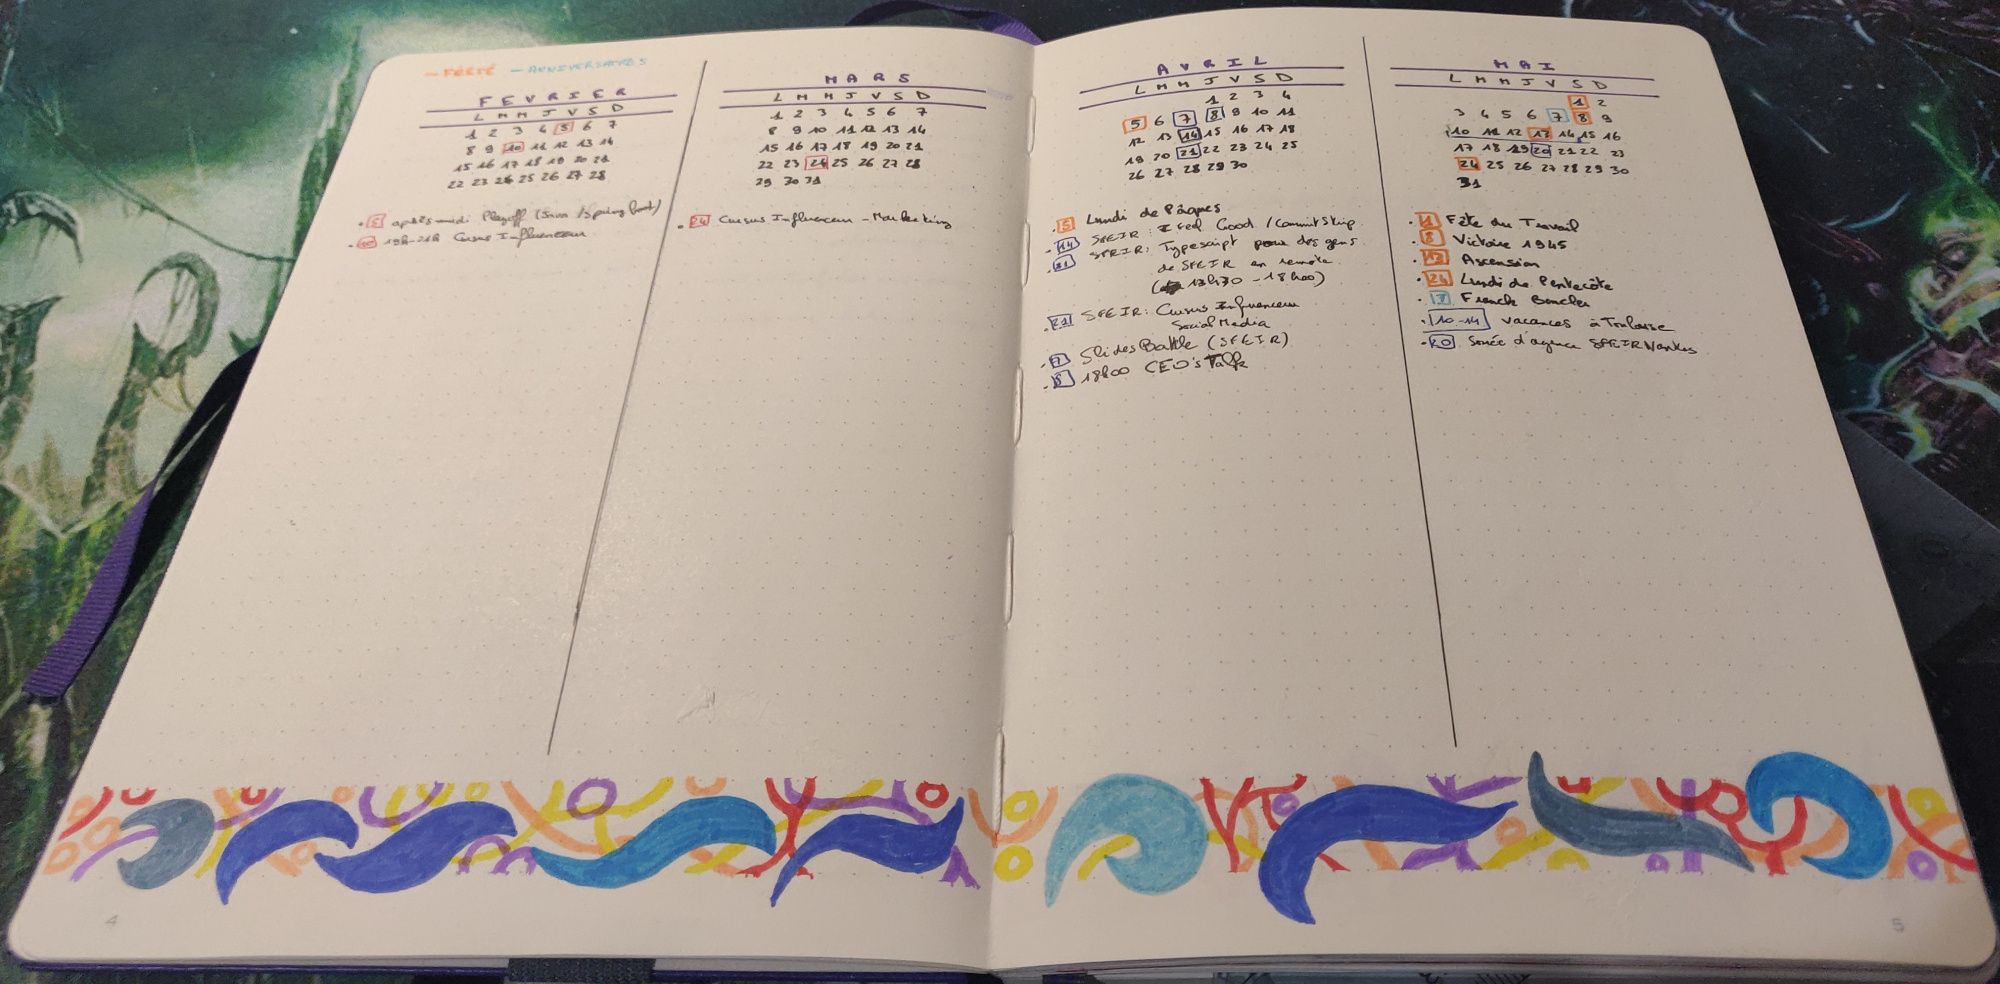 — FÉRIÉ — ANNIVERSAIRES
FEVRIER
L M M J V S D
1 2 3 4 5 6 7
8 9 10 11 12 13 14
15 16 17 18 19 20 21
22 23 24 25 26 27 28
• 5 après-midi Playoff (Java / Spring boot)
• 10 19h-21h Cursus Influenceur
MARS
L M M J V S D
1 2 3 4 5 6 7
8 9 10 11 12 13 14
15 16 17 18 19 20 21
22 23 24 25 26 27 28
29 30 31
• 24 Cursus Influenceur - Marketing
AVRIL
L M M J V S D
1 2 3 4
5 6 7 8 9 10 11
12 13 14 15 16 17 18
19 20 21 22 23 24 25
26 27 28 29 30
• 5 Lundi de Pâques
• 14 SFEIR : I Feel Good / CommitStrip
• 21 SFEIR : Typescript pour des gens
de SFEIR en remote
13h30 - 18h00)
• 21 SFEIR : Cursus Influenceur
Social Media
• 7 Slides Battle (SFEIR)
• 8 18h00 CEO's Talk
MAI
L M M J V S D
1 2
3 4 5 6 7 8 9
10 11 12 13 14 15 16
17 18 19 20 21 22 23
24 25 26 27 28 29 30
31
• 1 Fête du Travail
• 8 Victoire 1945
• 13 Ascension
• 24 Lundi de Pentecôte
• 7 Franck
• 10-14 vacances à Toulouse
• 20 Soirée d'agence SFEIR Nantes
4
5